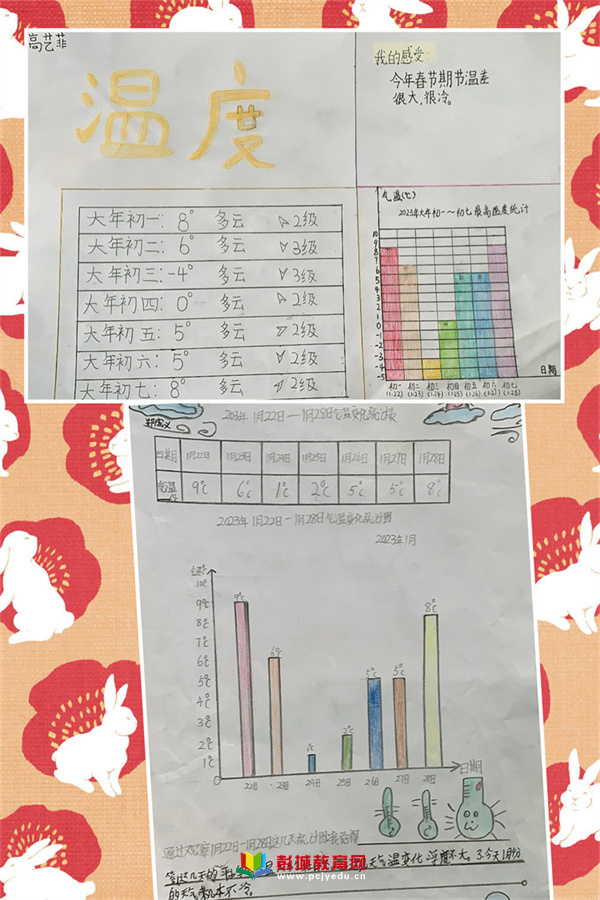 高艺菲
温度
我的感受:
今年春节期节温差
很大,很冷。
大年初一: 8° 多云 2级
大年初二: 6° 多云 3级
大年初三: -4° 多云 3级
大年初四: 0° 多云 2级
大年初五: 5° 多云 2级
大年初六: 5° 多云 2级
大年初七: 8° 多云 2级
气温(℃)
2023年大年初一~初七最高温度统计
10
9
8
7
6
5
4
3
2
1
0
-1
-2
-3
-4
-5
日期
初一 初二 初三 初四 初五 初六 初七
(1·22) (1·23) (1·24) (1·25) (1·26) (1·27) (1·28)
2023年1月22日—1月28日气温变化统计表
日期 1月22日 1月23日 1月24日 1月25日 1月26日 1月27日 1月28日
气温 9℃ 6℃ 1℃ 2℃ 5℃ 5℃ 8℃
2023年1月22日—1月28日气温变化统计图
2023年1月
10℃
9℃
8℃
7℃
6℃
5℃
4℃
3℃
2℃
1℃
9℃ 6℃ 1℃ 2℃ 5℃ 5℃ 8℃
22日 23日 24日 25日 26日 27日 28日
日期
通过观察1月22日—1月28日这几天统计图我觉得
天气温变化浮度不大。3.今天1月份
的天气基本不冷。
彭城教育网
www.pcjyedu.cn